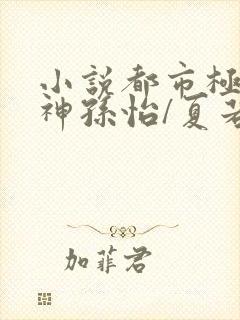 小説都市極
神孫怡/夏若
加菲君